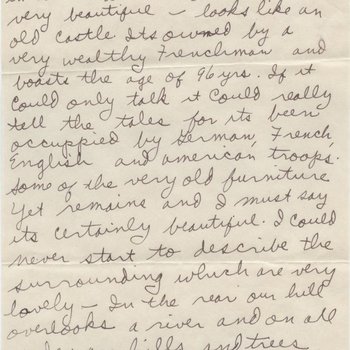 very beautiful – looks like an
old castle Its owned by a
very wealthy Frenchman and
boasts the age of 96 yrs. If it
could only talk it could really
tell the tales for its been
occuppied by German, French,
English and american troops.
Some of the very old furniture
yet remains and I must say
its certainly beautiful. I could
never start to describe the
surrounding which are very
lovely – In the rear our hill
overlooks a river and on all
hills and trees